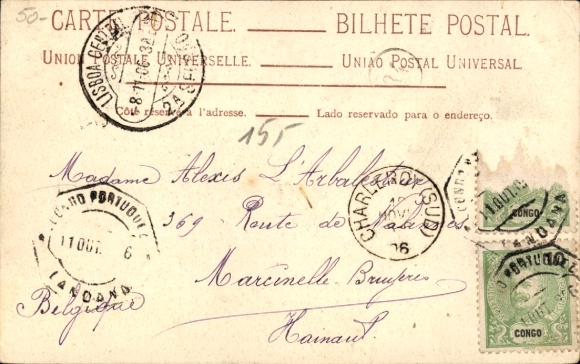 50-
CARTE POSTALE. — BILHETE POSTAL.
UNION POSTALE UNIVERSELLE. — UNIÃO POSTAL UNIVERSAL
Côté réservé à l'adresse. — Lado reservado para o endereço.
LISBOA-CENTRAL
8-11-06
2A SECÇÃO
155
Madame Alexis L'Arbalestrier
369 Route de
Marcinelle-Bruyères
Hainaut
Belgique
CHARLEROY (SUD)
NOV
06
CONGO PORTUGUEZ
11 OUT. 6
LANDANA
CONGO
11 OUT.
LANDANA
CONGO